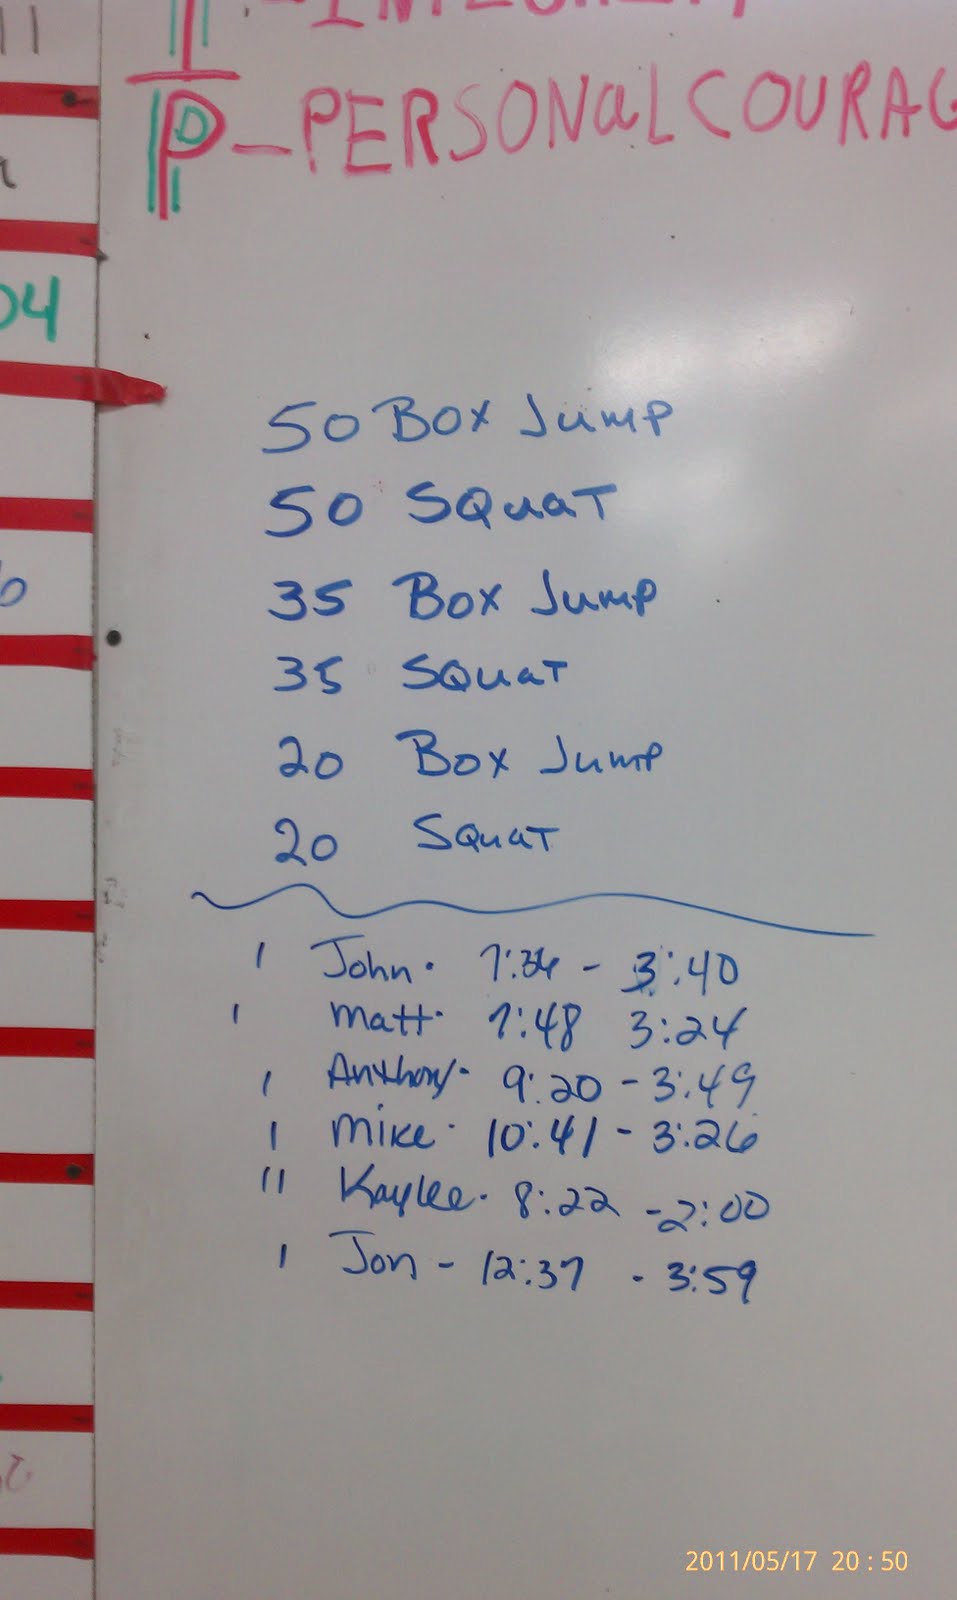 I - INTEGRITY
P - PERSONAL COURAG
04
50 Box Jump
50 Squat
35 Box Jump
35 Squat
20 Box Jump
20 Squat
1 John. 7:34 - 3:40
1 Matt. 7:48 3:24
1 Anthony. 9:20 - 3:49
1 Mike. 10:41 - 3:26
11 Kaylee. 8:22 - 2:00
1 Jon - 12:37 - 3:59
2011/05/17 20:50